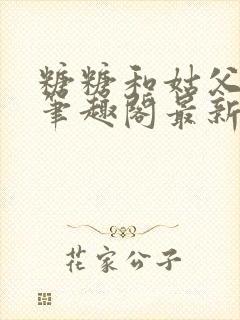 糖糖和姑父
笔趣阁最新
花家公子